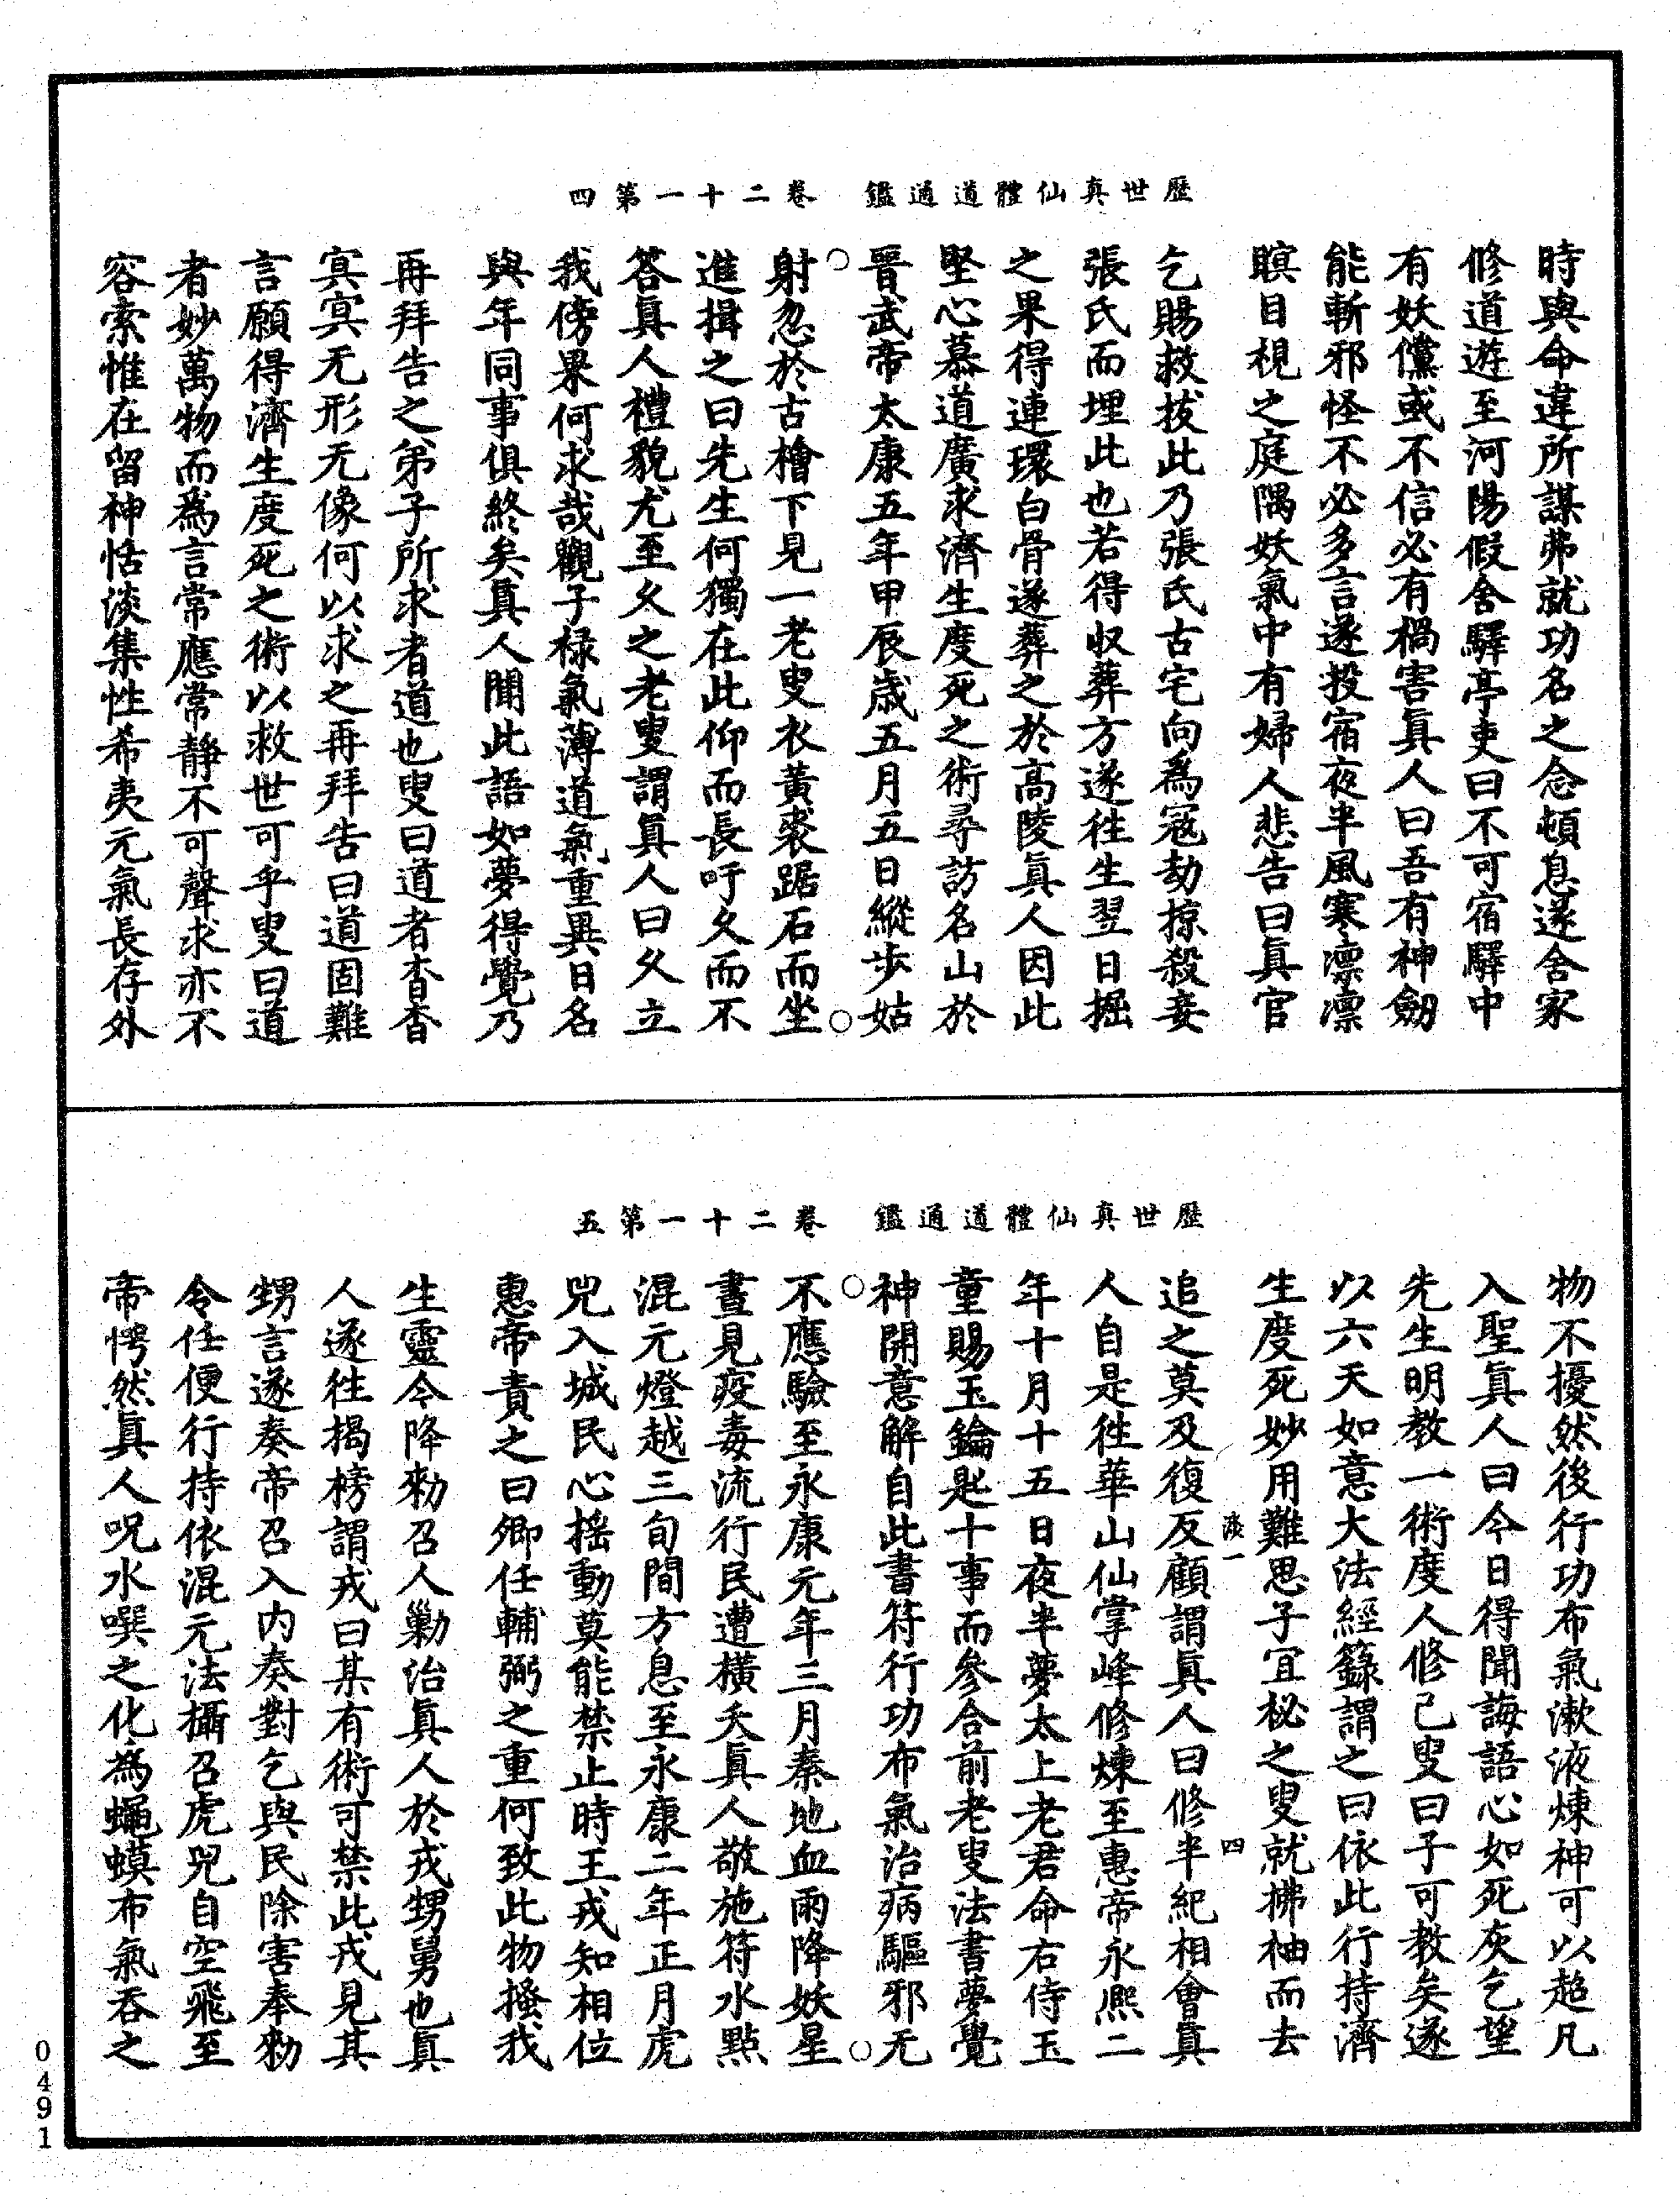 歷世真仙體道通鑑　卷二十一第四
時與命違所謀弗就功名之念頓息遂舍家
修道遊至河陽假舍驛亭吏曰不可宿驛中
有妖儻或不信必有禍害眞人曰吾有神劒
能斬邪怪不必多言遂投宿夜半風寒凛凛
瞑目視之庭隅妖氣中有婦人悲告曰眞官
乞賜救拔此乃張氏古宅向爲冦劫掠殺妾
張氏而埋此也若得収葬方遂徃生翌日掘
之果得連環白骨遂葬之於髙陵眞人因此
堅心慕道廣求濟生度死之術尋訪名山於
晉武帝太康五年甲辰歳五月五日縱步姑
射忽於古檜下見一老叟衣黃裘踞石而坐
進揖之曰先生何獨在此仰而長吁久而不
答眞人禮貌尤至久之老叟謂眞人曰久立
我傍果何求哉觀子禄氣薄道氣重異日名
與年同事俱終矣眞人聞此語如夢得覺乃
再拜告之弟子所求者道也叟曰道者杳杳
㝠㝠无形无像何以求之再拜告曰道固難
言願得濟生度死之術以救世可乎叟曰道
者妙萬物而爲言常應常靜不可聲求亦不
容索惟在留神恬淡集性希夷元氣長存外
歷世真仙體道通鑑　卷二十一第五
物不擾然後行功布氣漱液煉神可以超凡
入聖眞人曰今日得聞誨語心如死灰乞望
先生明教一術度人修己叟曰子可教矣遂
以六天如意大法經籙謂之曰依此行持濟
生度死妙用難思子宜秘之叟就拂袖而去
淡一　四
追之莫及復反顧謂眞人曰修半紀相會眞
人自是徃華山仙掌峰修煉至惠帝永熈二
年十月十五日夜半夢太上老君命右侍玉
童賜玉鑰匙十事而參合前老叟法書夢覺
神開意解自此書符行功布氣治病驅邪无
不應驗至永康元年三月秦地血雨降妖星
晝見疫毒流行民遭橫夭眞人敬施符水㸃
混元燈越三旬間方息至永康二年正月虎
兕入城民心揺動莫能禁止時王戎知相位
惠帝責之曰卿任輔弼之重何致此物搔我
生靈今降勑召人勦治眞人於戎甥舅也眞
人遂徃揭榜謂戎曰某有術可禁此戎見其
甥言遂奏帝召入内奏對乞與民除害奉勑
令任便行持依混元法攝召虎兕自空飛至
帝愕然眞人呪水噀之化爲蠅蟆布氣吞之
0491